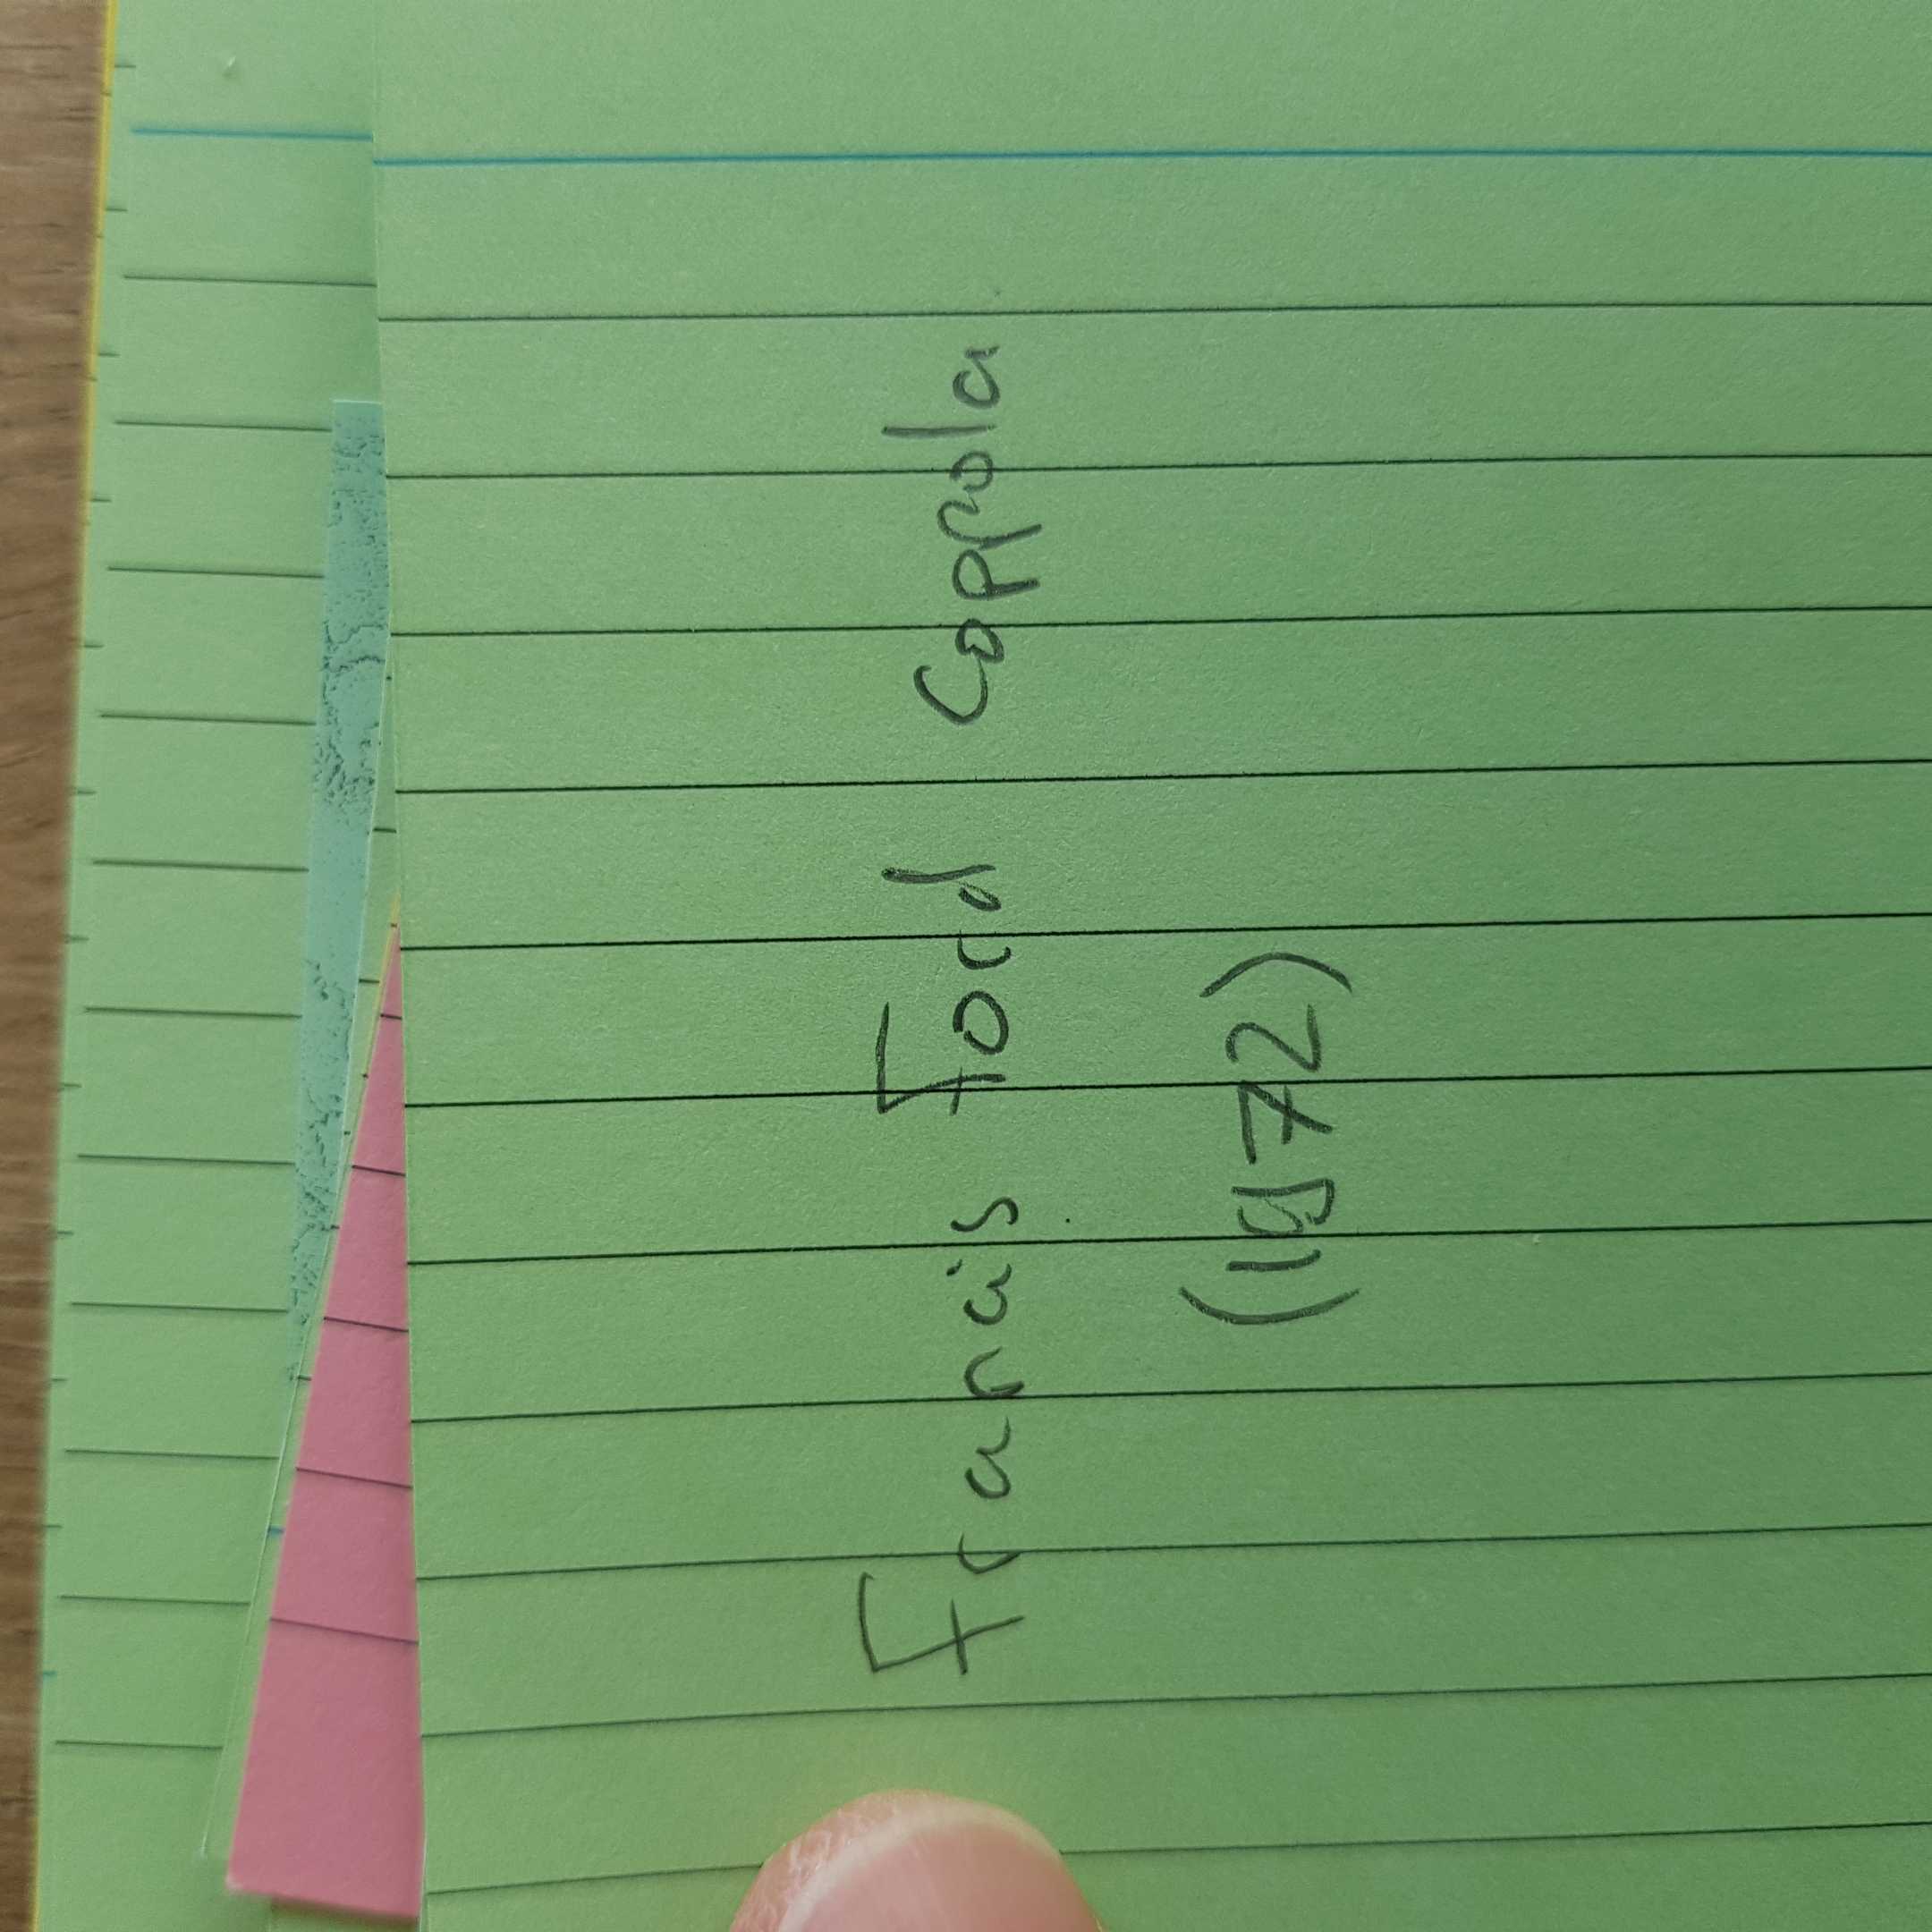 Francis Ford Coppola
(1972)